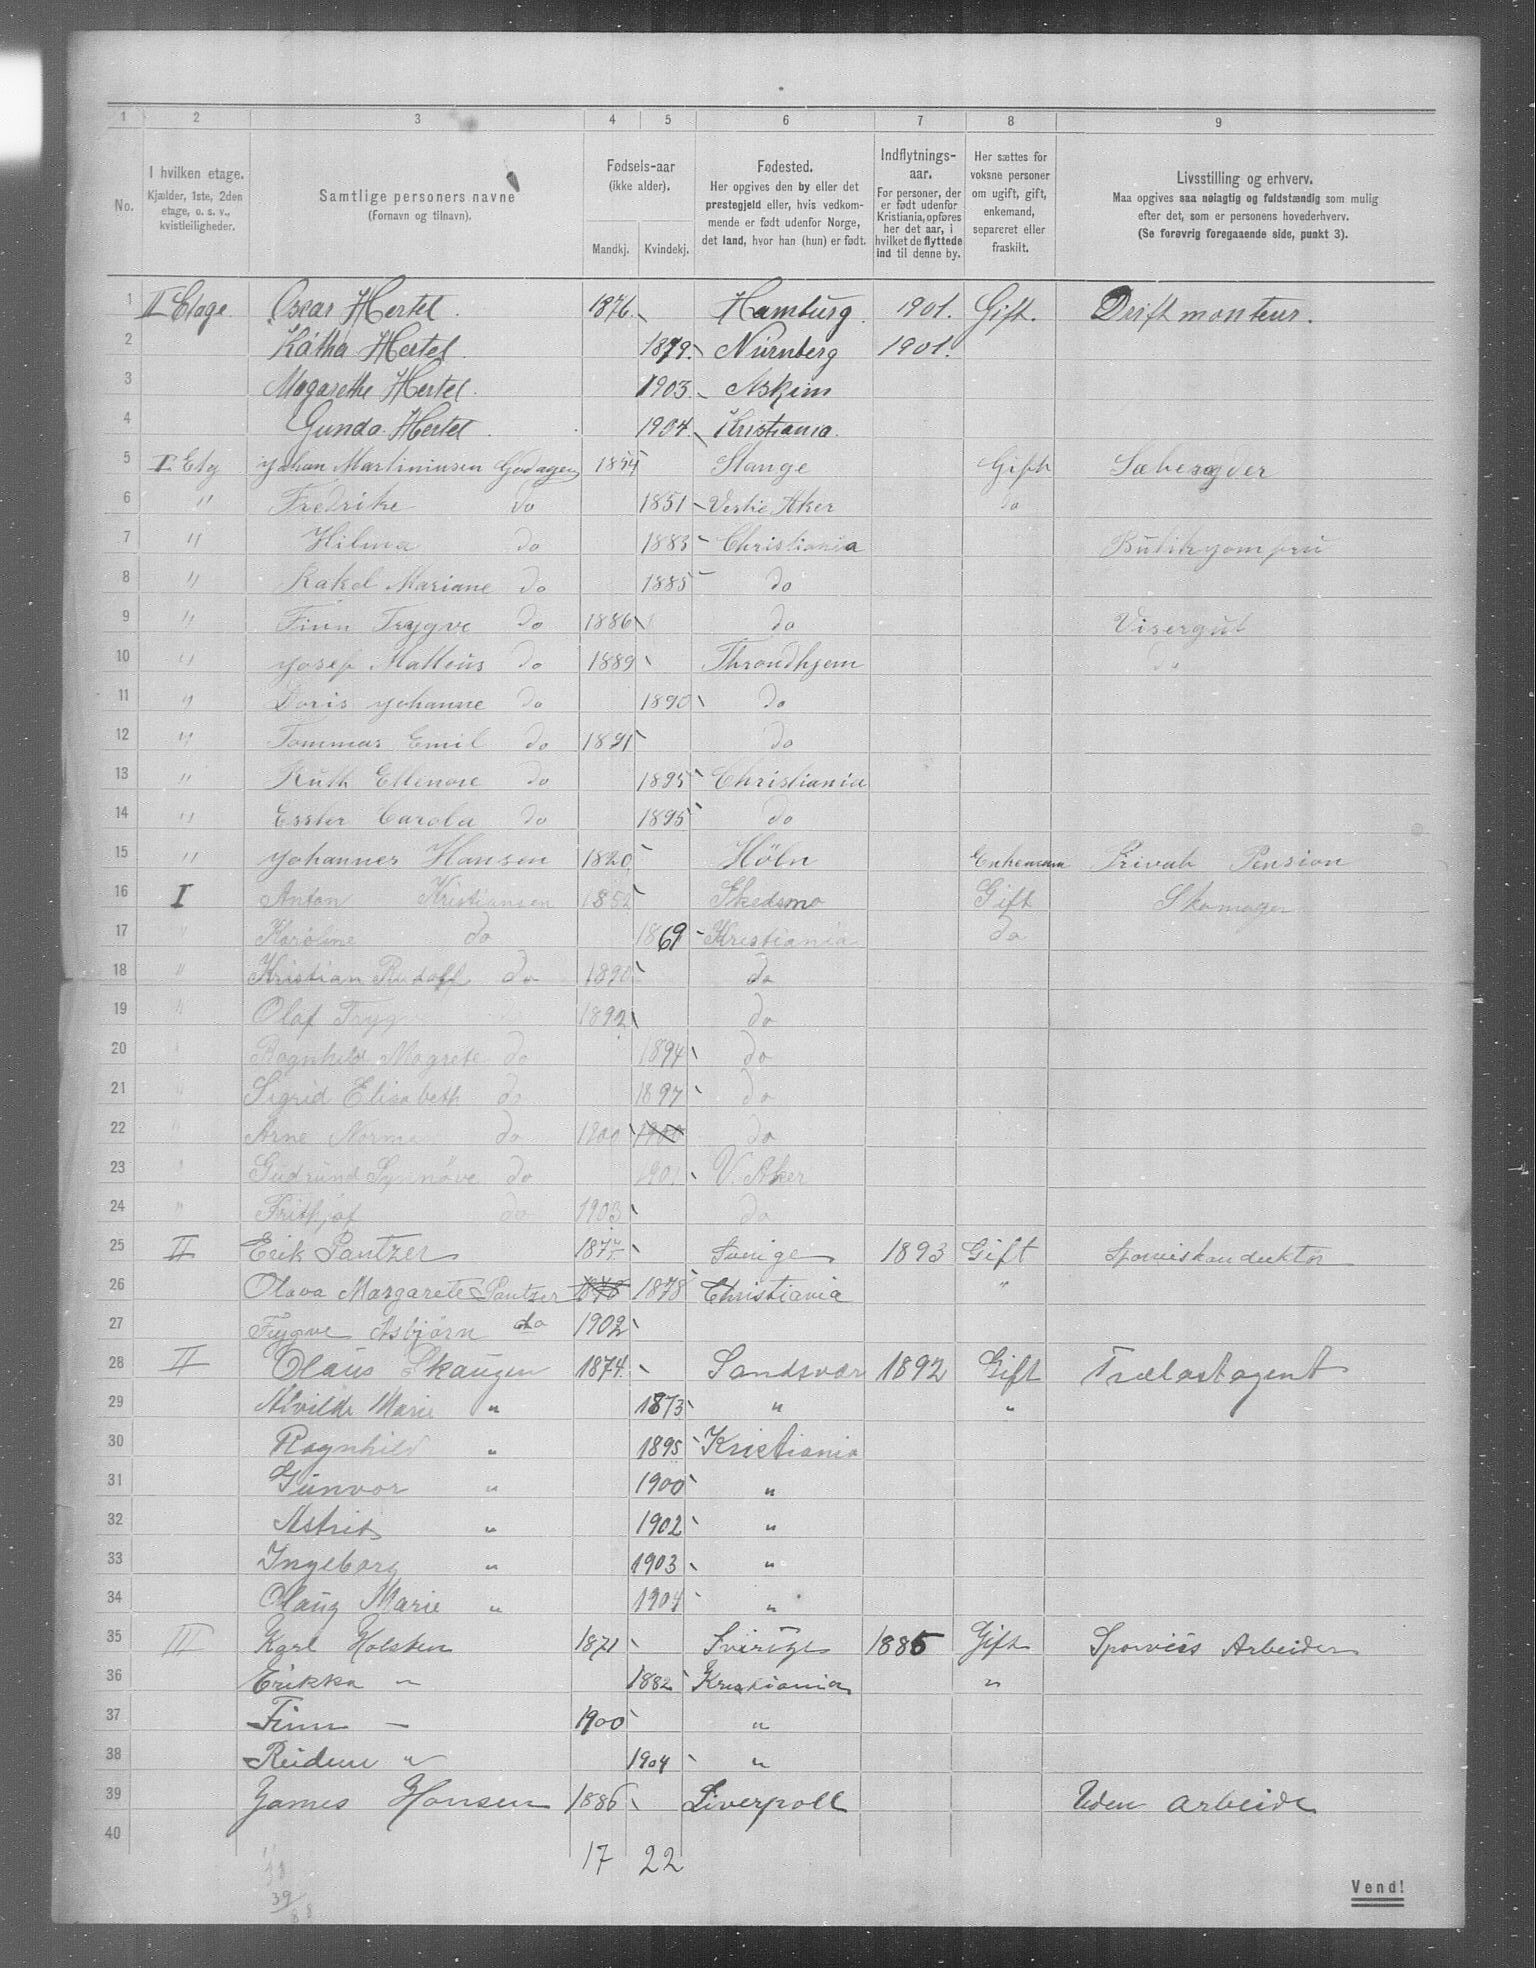 1 2 3 4 5 6 7 8 9
No.
I hvilken etage.
Kjælder, 1ste, 2den
etage, o. s. v.,
kvistleiligheder.
Samtlige personers navne
(Fornavn og tilnavn).
Fødsels-aar
(ikke alder).
Mandkj. Kvindekj.
Fødested.
Her opgives den by eller det
prestegjeld eller, hvis vedkom-
mende er født udenfor Norge,
det land, hvor han (hun) er født.
Indflytnings-
aar.
For personer, der
er født udenfor
Kristiania, opføres
her det aar, i
hvilket de flyttede
ind til denne by.
Her sættes for
voksne personer
om ugift, gift,
enkemand,
separeret eller
fraskilt.
Livsstilling og erhverv.
Maa opgives saa nøiagtig og fuldstændig som mulig
efter det, som er personens hovederhverv.
(Se forøvrig foregaaende side, punkt 3).
1 II Etage Oscar Hertel 1876 Hamburg 901. Gift. Driftmonteur.
2 Kátha Hertel 1879. Nürnberg 1901.
3 Magarethe Hertel. 1903. Askim
4 Gunda Hertel 1904. Kristiania.
5 I Etg Johan Martiniusen Godager 1854 Stange Gift
6 " Fredrike do 1851 Vestre Aker do
7 " Hilma do 1883 Christiania Butikjomfru
8 " Rakel Mariane do 1885 do
9 " Finn Trygve do 1886 do Visergut
10 " Josef Matteus do 1889 Throndhjem do
11 " Doris Johanne do 1890 do
12 " Tommas Emil do 1891 do
13 " Ruth Ellenore do 1895 Christiania
14 " Esster Carola do 1895 do
15 " Johannes Hansen 1820 Höln Enkemann Privat Pension
16 I Anton Kristiansen 1852 Skedsmo Gift Skomager
17 " Karoline do 1869 Kristiania do
18 " Kristian Rudolf do 1890 do
19 " Olaf Tryg 1892 do
20 " Ragnhild Magrete do 1894 do
21 " Sigrid Elisabeth do 1897 do
22 " Arne Norma do 1900 1900 do
23 " Gudrund Synnöve do 1901 V. Aker
24 " Frithjof do 1903 do
25 II Erik Pantzer 187 Sverige 1893 Gift Sporviskonduktør
26 Olava Margarete Pantzer 1878 1878 Christiania "
27 Trygve Asbjörn do 1902
28 II Olaus Skaugen 1874. Sandsvær 1892 Gift Trælastagent
29 Alvilde Marie " 1873 " "
30 Ragnhild " 1895 Kristiania
31 Gunvor " 1900 "
32 Astrid " 1902 "
33 Ingeborg " 1903 "
34 Olaug Marie " 1904 "
35 III Karl Holsten 1871 Sverige 1885 Gift Sporveis Arbeider
36 Erikka " 1882 Kristiania "
37 Finn — 1900 "
38 Reidun " 1904 "
39 James Hansen 1886 Liverpoll Uden arbeide
40
17 22
39
Vend!